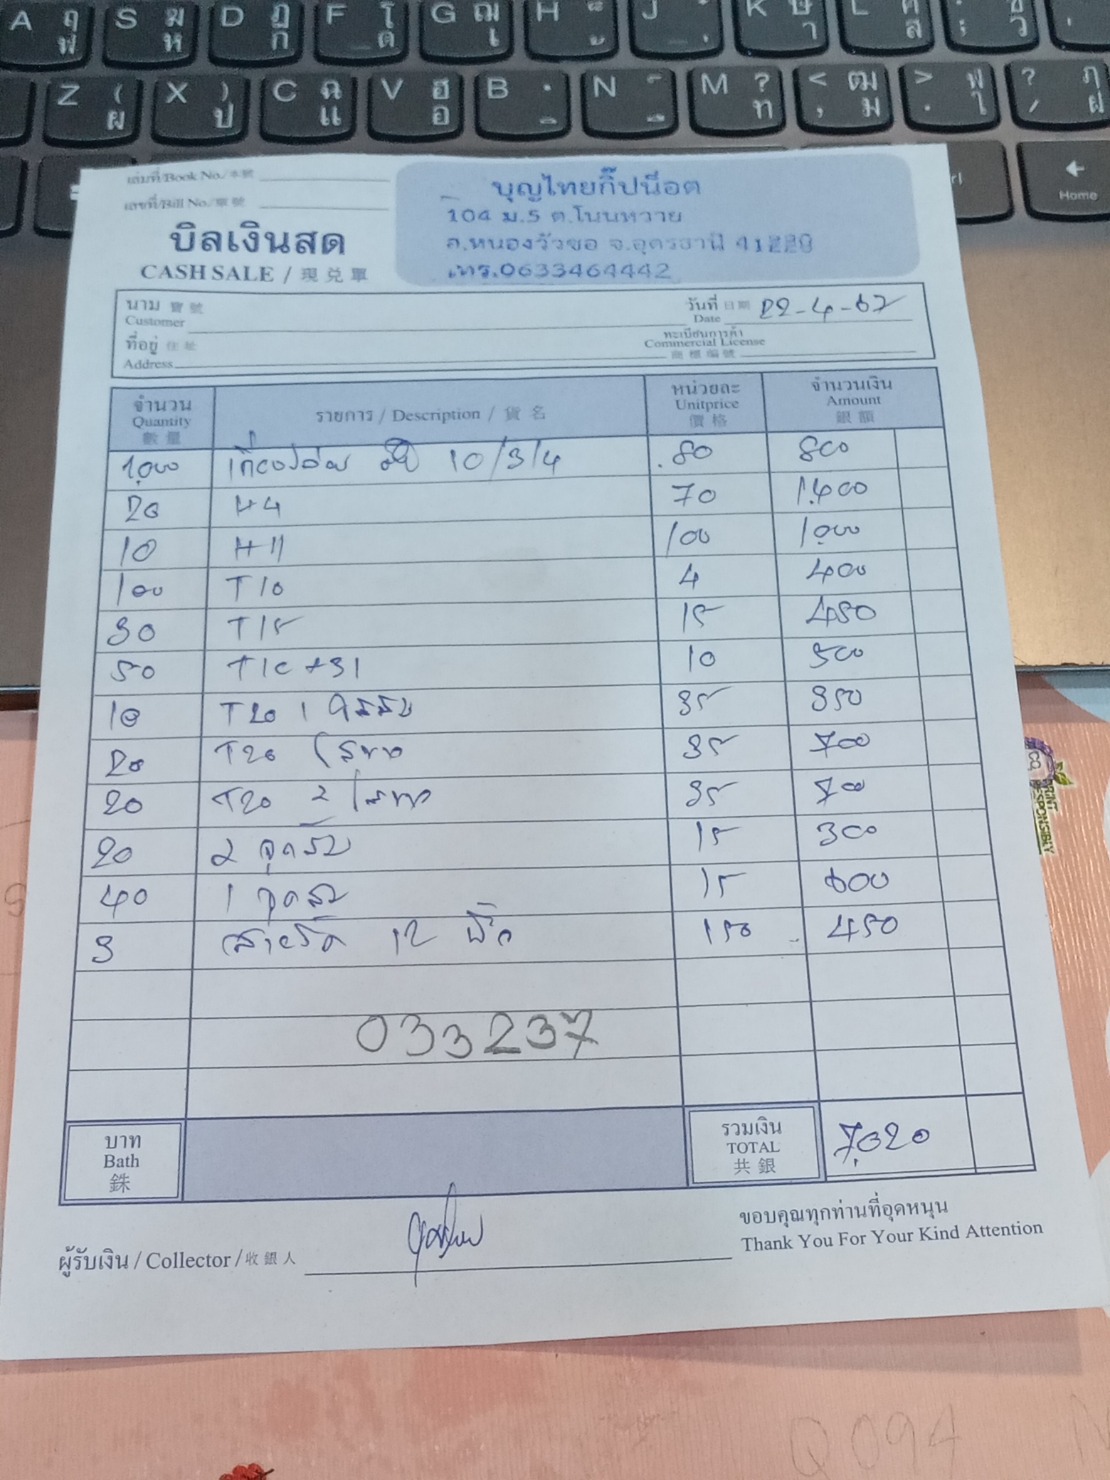 A ฤ ฟ S ฆ ห D ฏ ก F โ ด G ฌ เ H J K ษ า L ศ ส ; ซ ว
Z ( ผ X ) ป C ฉ แ V ฮ อ B N M ? ท < , ฒ ม > . ฬ ใ ? / ฦ ฝ
Home
เล่มที่/Book No./本號
เลขที่/Bill No./單號
บิลเงินสด
CASH SALE / 現兌單
บุญไทยกิ๊ปน็อต
104 ม.5 ต.โนนหวาย
อ.หนองวัวซอ จ.อุดรธานี 41220
โทร.0633464442
นาม 寶號
Customer
วันที่ 日期
Date 22-4-67
ที่อยู่ 住址
Address
ทะเบียนการค้า
Commercial License
商標編號
จำนวน
Quantity
數量
รายการ / Description / 貨名
หน่วยละ
Unitprice
價格
จำนวนเงิน
Amount
銀額
1,000 10/3/4 .80 800
20 H4 70 1,400
10 H11 100 1,000
100 T10 4 400
30 T15 15 450
50 T10+31 10 500
10 T20 1 35 350
20 T20 35 700
20 T20 2 35 700
20 2 จุด 15 300
40 1 จุด 15 600
3 สายรัด 12 นิ้ว 150 450
033237
บาท
Bath
銖
รวมเงิน
TOTAL
共銀
7,020
ผู้รับเงิน / Collector / 收銀人
ขอบคุณทุกท่านที่อุดหนุน
Thank You For Your Kind Attention
Q094